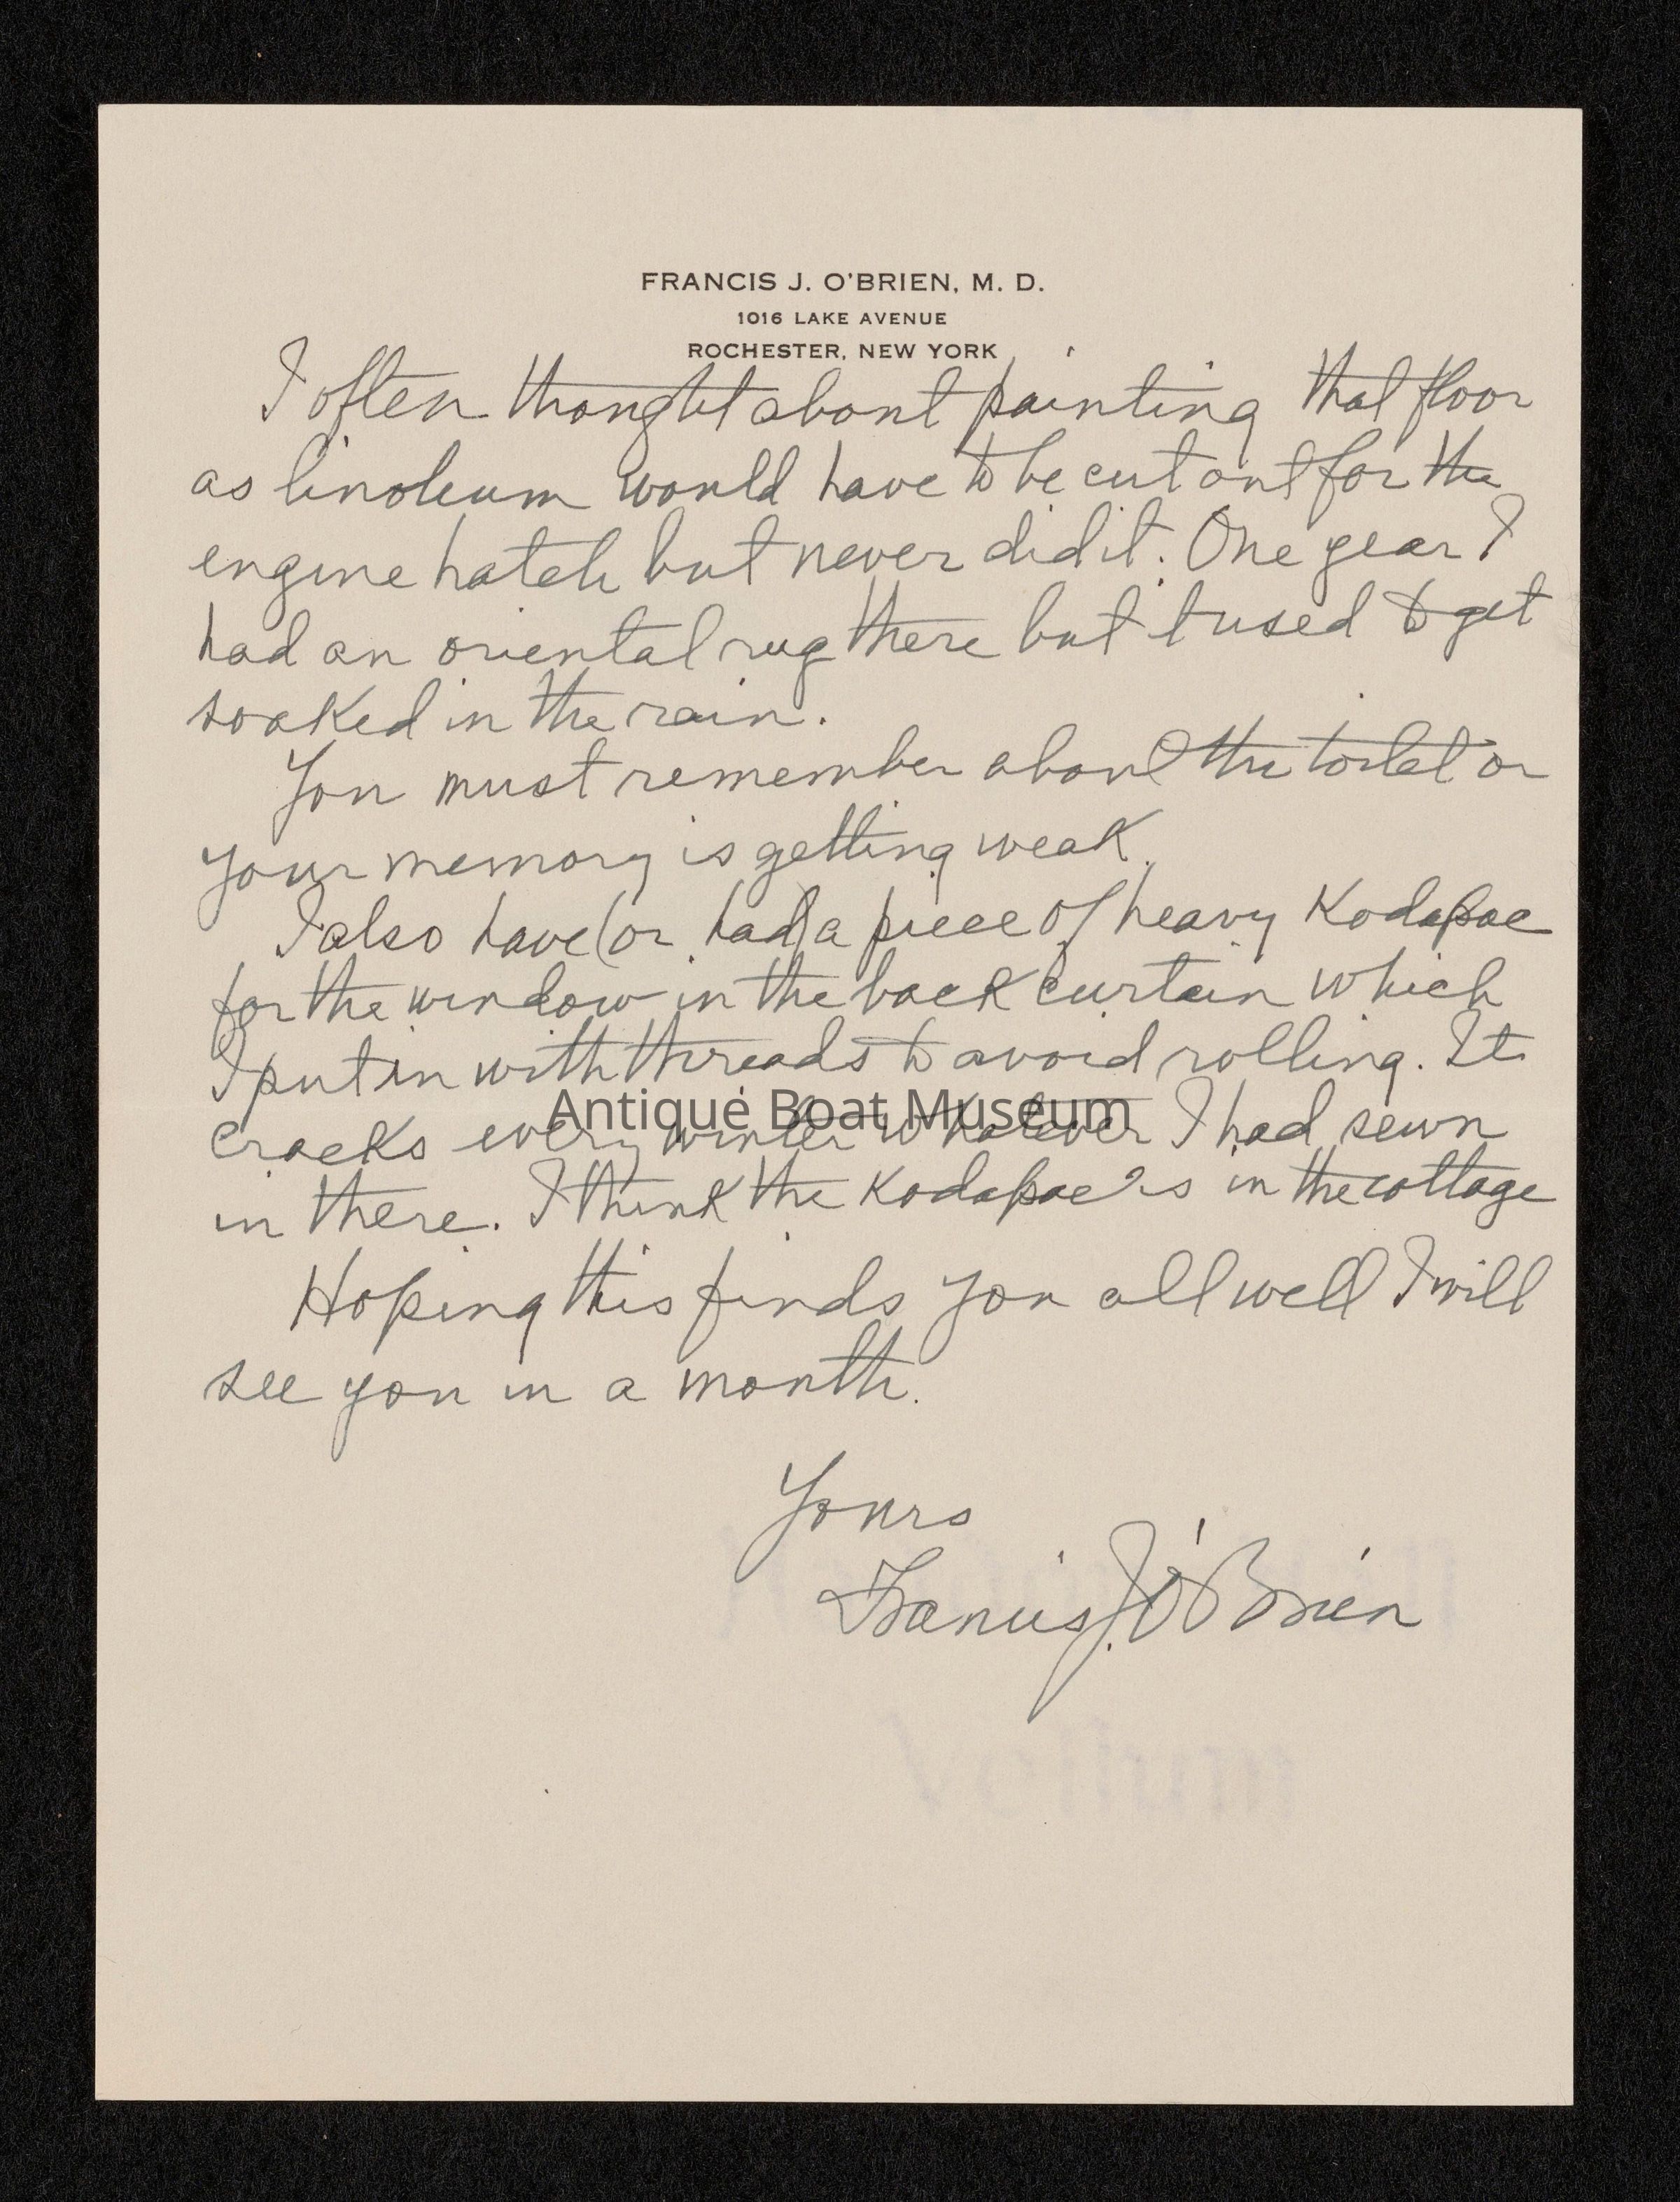 FRANCIS J. O'BRIEN, M. D.
1016 LAKE AVENUE
ROCHESTER, NEW YORK
I often thought about painting that floor
as linoleum would have to be cut out for the
engine hatch but never did it. One year I
had an oriental rug there but it used to get
soaked in the rain.
You must remember about the toilet or
your memory is getting weak.
I also have (or had) a piece of heavy Kodapac
for the window in the back curtain which
I put in with threads to avoid rolling. It
cracks every winter whatever I had sewn
Antique Boat Museum
in there. I think the Kodapac is in the cottage
Hoping this finds you all well I will
see you in a month.
Yours
Francis J. O'Brien